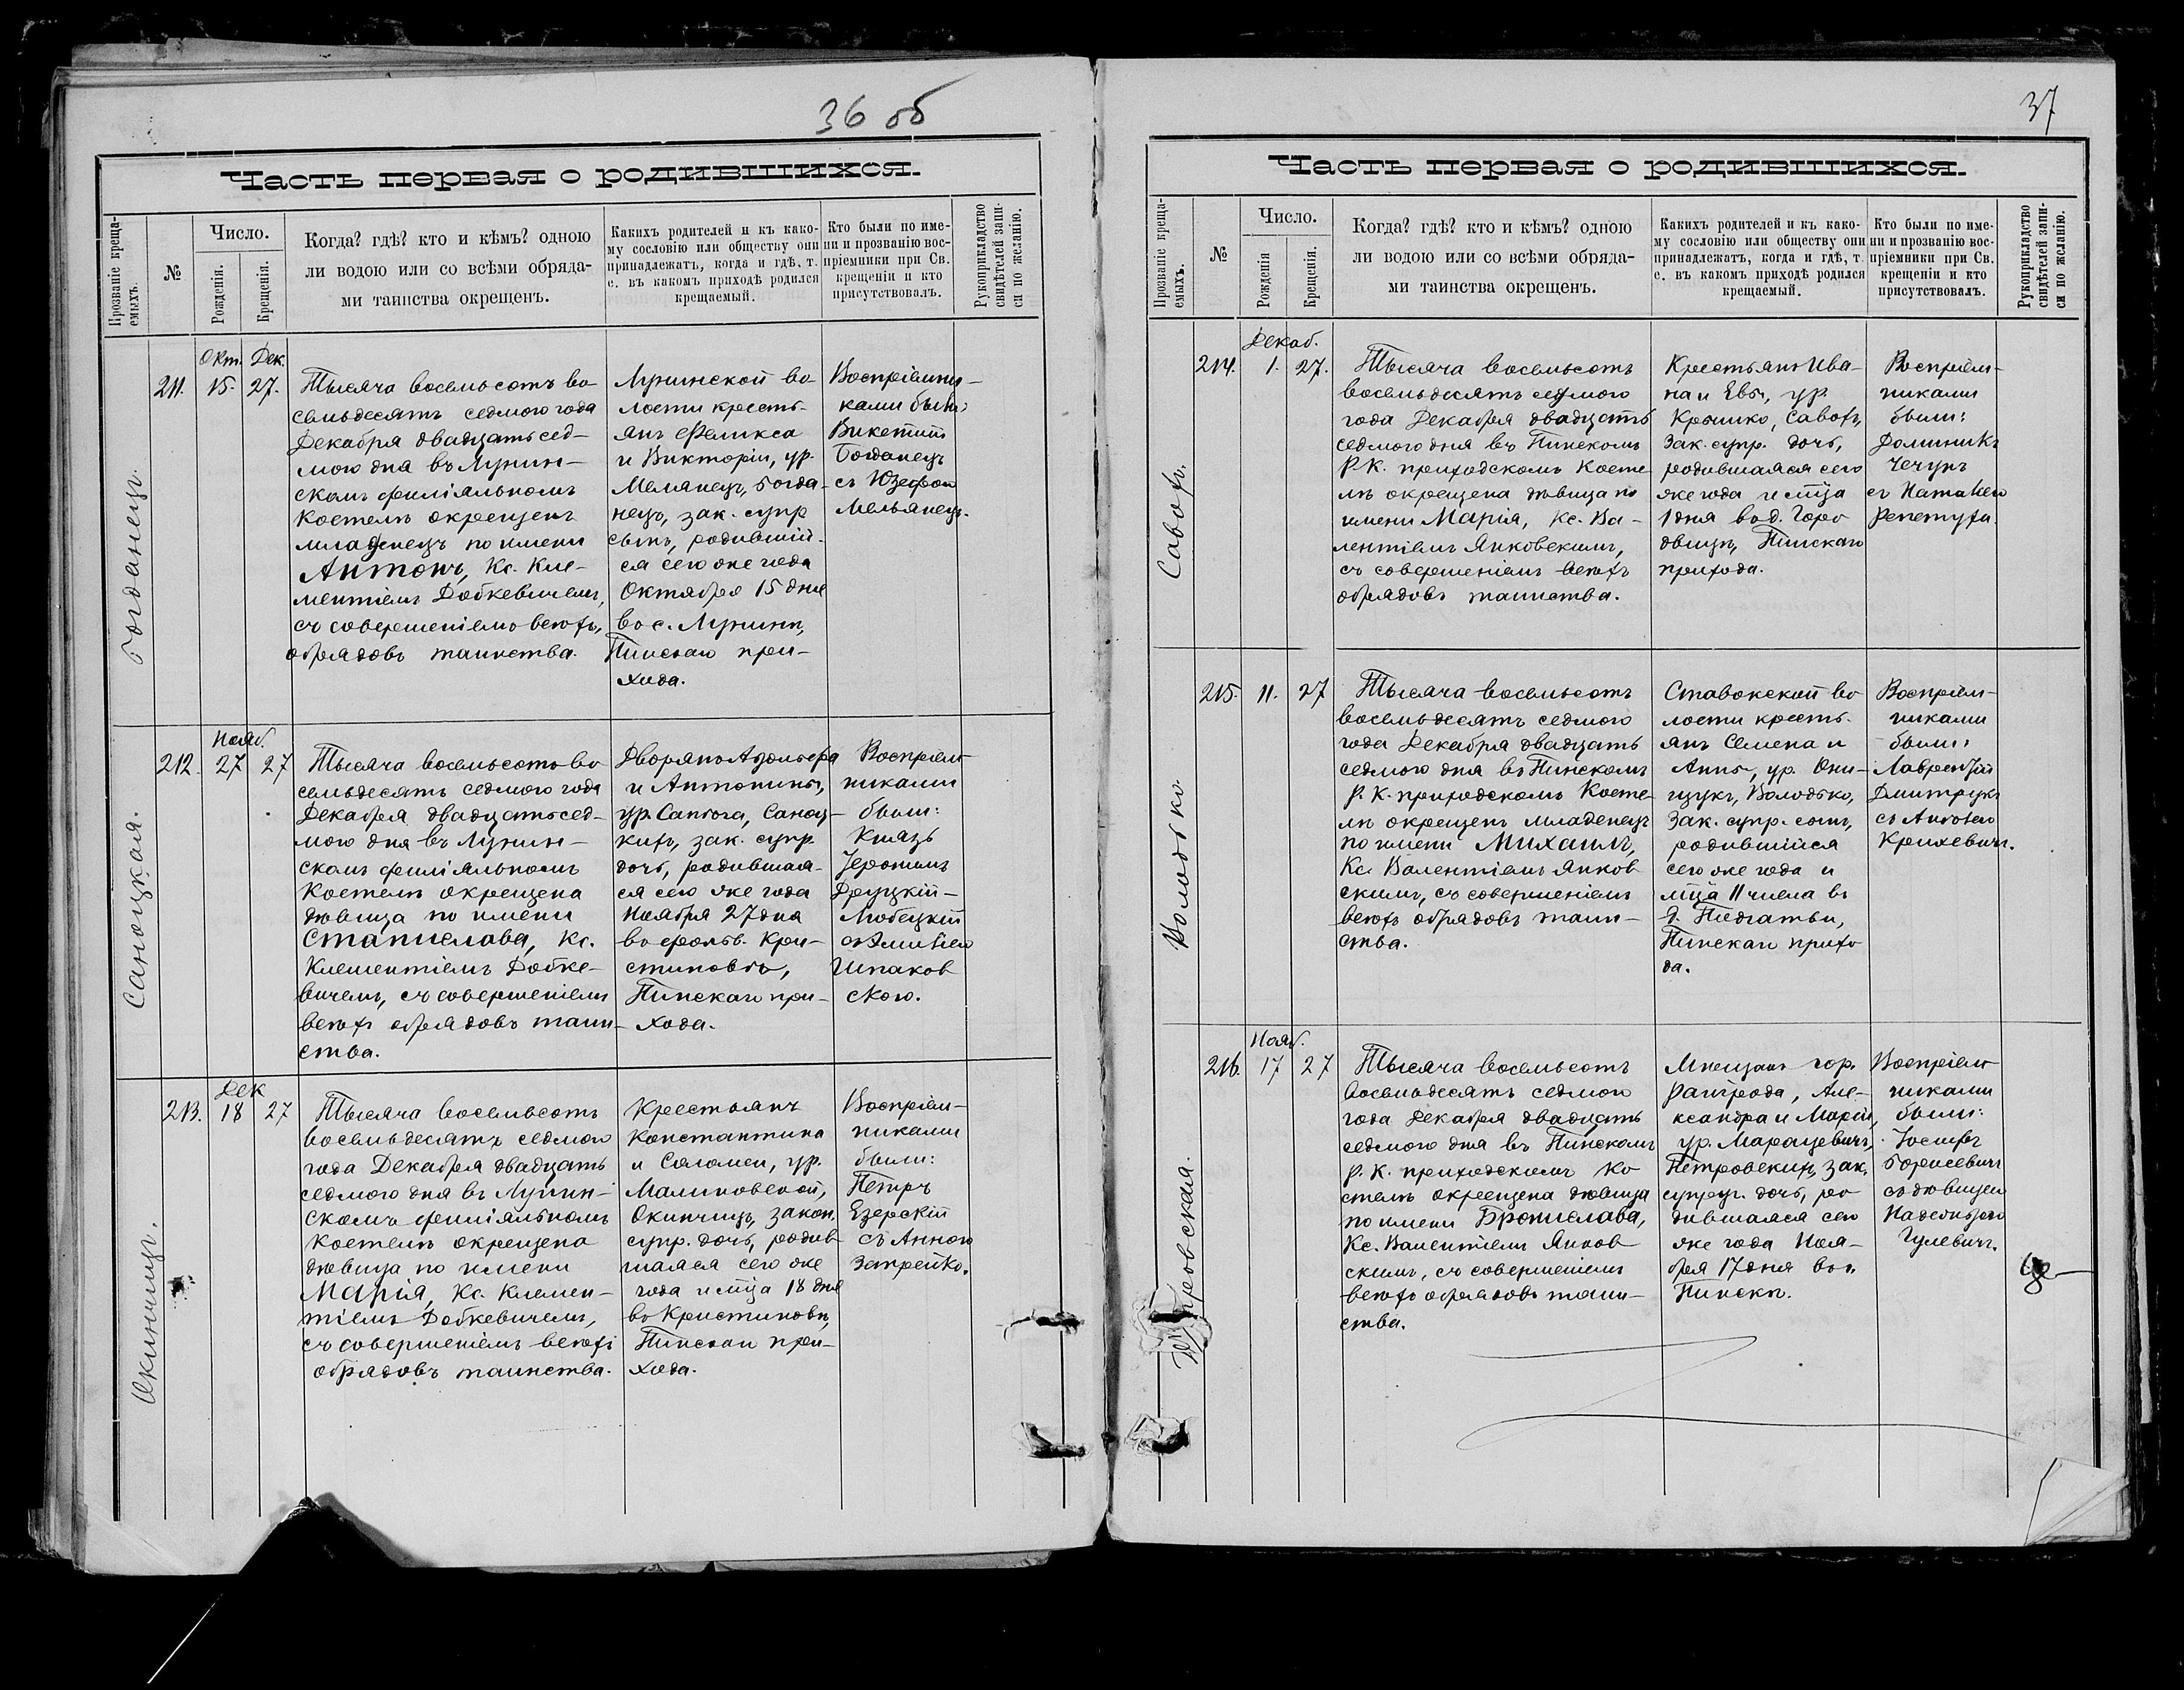 36 об
Часть первая о родившихся.
Прозваніе креща-
емыхъ.
№
Число.
Рожденія.
Крещенія.
Когда? гдѣ? кто и кѣмъ? одною
ли водою или со всѣми обряда-
ми таинства окрещенъ.
Какихъ родителей и къ како-
му сословію или обществу они
принадлежатъ, когда и гдѣ, т.
с. въ какомъ приходѣ родился
крещаемый.
Кто были по име-
ни и прозванію вос-
пріемники при Св.
крещеніи и кто
присутствовалъ.
Рукоприкладство
свидѣтелей запи-
си по желанію.
Богданецъ.
211.
Окт. Дек.
15. 27.
Тысяча восемьсотъ во
семьдесятъ седьмого года
Декабря двадцать сед-
мого дня въ Лунин-
скомъ филіяльномъ
Костелѣ окрещенъ
младенецъ по имени
Антонъ, Кс. Кле-
ментіемъ Добкевичемъ,
съ совершеніемъ всѣхъ
обрядовъ таинства.
Лунинской во
лости кресть-
янъ Феликса
и Викторіи, ур.
Мелянецъ, Богда-
нецъ, зак. супр
сынъ, родившій-
ся сего же года
Октября 15 дня
во с. Лунинѣ,
Пинскаго при-
хода.
Воспріемни-
ками были:
Викетій
Богданецъ
съ Юзефою
Мельянецъ.
Саноцкая.
212.
Нояб.
27 27
Тысяча восемьсотъ во
семьдесятъ седмого года
Декабря двадцать сед-
мого дня въ Лунин-
скомъ филіяльномъ
Костелѣ окрещена
дѣвица по имени
Станислава, Кс.
Клементіемъ Добке-
вичемъ, съ совершеніемъ
всѣхъ обрядовъ таин-
ства.
Дворянъ Адольфа
и Антонины,
ур. Сапѣга, Саноц-
кихъ, зак. супр.
дочь, родившая-
ся сего же года
Ноября 27 дня
во фольв. Кри-
стиновѣ,
Пинскаго при-
хода.
Воспріем-
никами
были:
Князь
Іеронимъ
Друцкій-
Любецкій
съ Эмиліею
Шпаков
скою.
Окинчицъ.
213.
Дек
18 27
Тысяча восемьсотъ
восемьдесятъ седмого
года Декабря двадцать
седмого дня въ Лунин-
скомъ филіяльномъ
костелѣ окрещена
дѣвица по имени
Марія, Кс. Клемен-
тіемъ Добкевичемъ,
съ совершеніемъ всѣхъ
обрядовъ таинства.
Крестьянъ
Константина
и Саломеи, ур.
Малиновской,
Окинчицъ, закон.
супр. дочь, родив
шаяся сего же
года и м-ца 18 дня
въ Кристиновѣ,
Пинскаго при-
хода.
Воспріем-
никами
были:
Петръ
Езерскій
съ Анною
Запрейко.
37
Часть первая о родившихся.
Прозваніе креща-
емыхъ.
№
Число.
Рожденія
Крещенія.
Когда? гдѣ? кто и кѣмъ? одною
ли водою или со всѣми обряда-
ми таинства окрещенъ.
Какихъ родителей и къ како-
му сословію или обществу они
принадлежатъ, когда и гдѣ, т.
с. въ какомъ приходѣ родился
крещаемый.
Кто были по име-
ни и прозванію вос-
пріемники при Св.
крещеніи и кто
присутствовалъ.
Рукоприкладство
свидѣтелей запи-
си по желанію.
Савохъ.
214.
Декаб.
1. 27.
Тысяча восемьсотъ
восемьдесятъ седмого
года Декабря двадцать
седмого дня въ Пинскомъ
Р.К. приходскомъ Косте
лѣ окрещена дѣвица по
имени Марія, Кс. Ва-
лентіемъ Янковскимъ,
съ совершеніемъ всѣхъ
обрядовъ таинства.
Крестьянъ Ива-
на и Евы, ур.
Крошко, Савохъ,
зак. супр. дочь,
родившаяся сего
же года и м-ца
1 дня въ д. Горо
двицѣ, Пинскаго
прихода.
Воспріем-
никами
были:
Доминикъ
Чечукъ
съ Наталею
Репетуха.
Володько.
215. 11. 27
Тысяча восемьсотъ
восемьдесятъ седмого
года Декабря двадцать
седмого дня въ Пинскомъ
Р. К. приходскомъ Косте-
лѣ окрещенъ младенецъ
по имени Михаилъ,
Кс. Валентіемъ Янков
скимъ, съ совершеніемъ
всѣхъ обрядовъ таин-
ства.
Ставокской во
лости кресть-
янъ Семена и
Анны, ур. Они-
щукъ, Володько,
зак. супр. сынъ,
родившійся
сего же года и
м-ца 11 числа въ
д.
Пинскаго прихо
да.
Воспріем-
никами
были:
Лаврентій
Дмитрукъ
съ Антосею
Крихевичъ.
Петровская.
216.
Нояб.
17 27
Тысяча восемьсотъ
восемьдесятъ седмого
года Декабря двадцать
седмого дня въ Пинскомъ
Р. К. приходскомъ Ко
стелѣ окрещена дѣвица
по имени Бронислава,
Кс. Валентіемъ Янков
скимъ, съ совершеніемъ
всѣхъ обрядовъ таин-
ства.
Мѣщанъ гор.
Райгрода, Але-
ксандра и Маріи,
ур. Марацевичъ,
Петровскихъ, зак.
супруг. дочь, ро
дившаяся сего
же года Ноя-
бря 17 дня въ г.
Пинскѣ.
Воспріем
никами
были:
Іосифъ
Борисевичъ
съ дѣвицею
Надеждою
Гулевичъ.